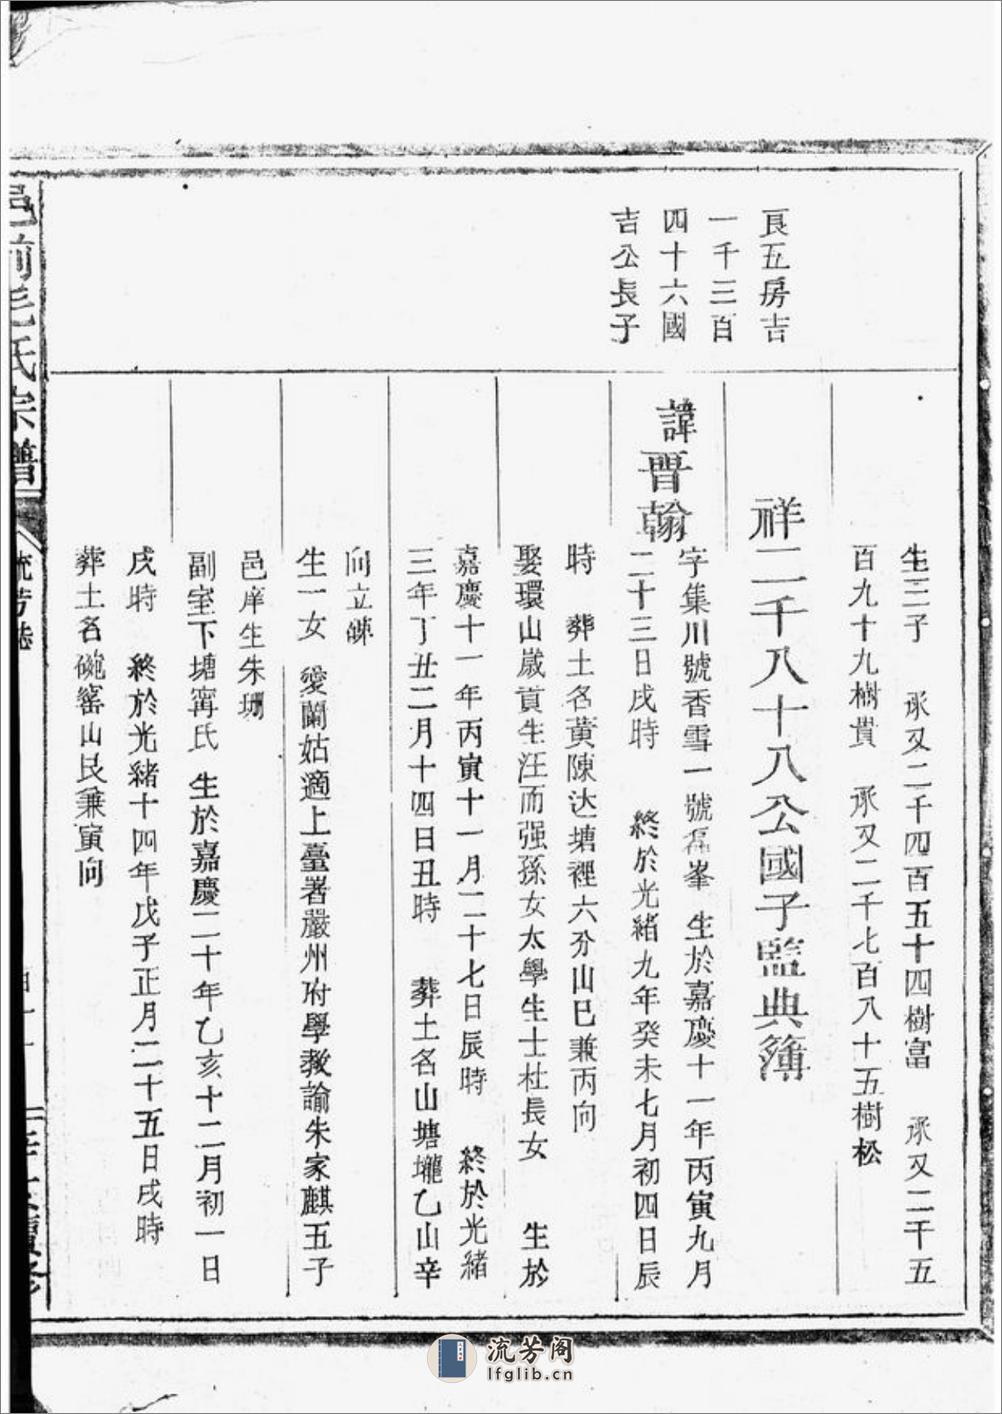 生三子　承又二千四百五十四樹富　承又二千五
百九十九樹貴　承又二千七百八十五樹松
良五房吉
一千三百
四十六國
吉公長子
祥二千八十八公國子監典簿
諱晋翰
字集川號香雪一號磊峯　生於嘉慶十一年丙寅九月
二十三日戌時　終於光緒九年癸未七月初四日辰
時　葬土名黄陳达塘裡六分山巳兼丙向
娶環山歲貢生汪而强孫女太學生士杜長女　生於
嘉慶十一年丙寅十一月二十七日辰時　終於光緒
三年丁丑二月十四日丑時　葬土名山塘壠乙山辛
向立碑
生一女　愛蘭姑適上臺著嚴州府學教諭朱家麒五子
邑庠生朱珊
副室下塘甯氏　生於嘉慶二十年乙亥十二月初一日
戌時　終於光緒十四年戊子正月二十五日戌時
葬土名碗窰山艮兼寅向
邑前毛氏宗譜
流芳閣
lfglib.cn